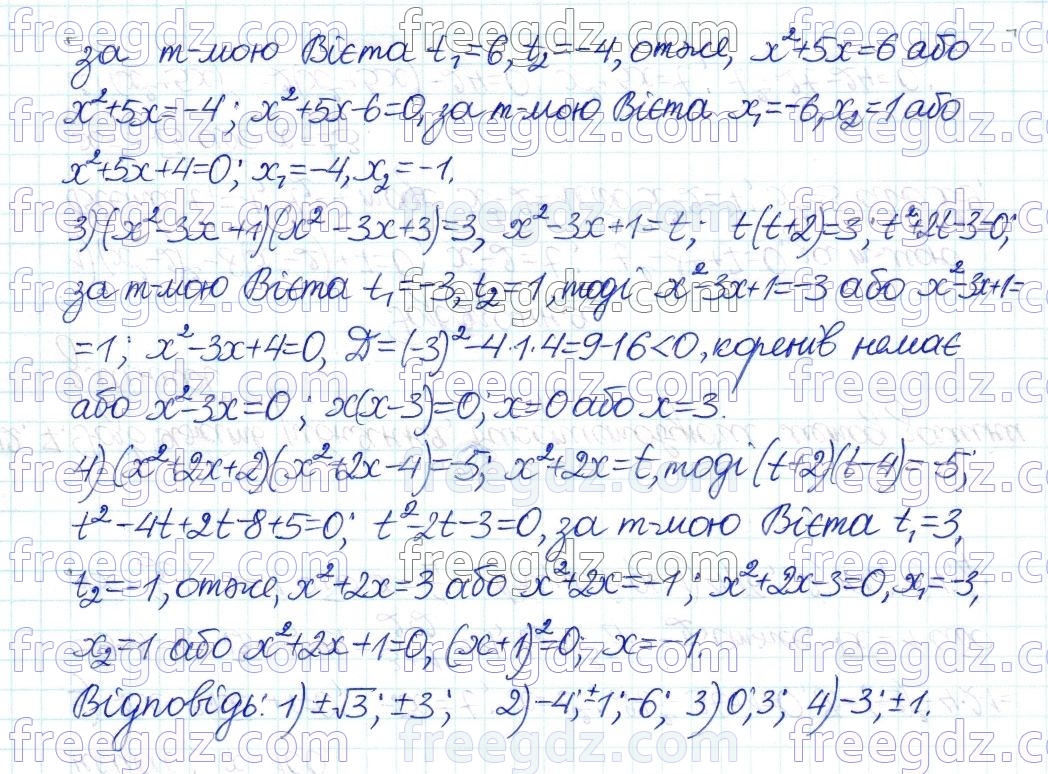 за т-мою Вієта t₁=6, t₂=-4, отже, x²+5x=6 або
x²+5x=-4; x²+5x-6=0, за т-мою Вієта x₁=-6, x₂=1 або
x²+5x+4=0; x₁=-4, x₂=-1.
3) (x²-3x+1)(x²-3x+3)=3, x²-3x+1=t; t(t+2)=3; t²+2t-3=0;
за т-мою Вієта t₁=-3, t₂=1, тоді x²-3x+1=-3 або x²-3x+1=
=1; x²-3x+4=0, D=(-3)²-4·1·4=9-16<0, коренів немає
або x²-3x=0; x(x-3)=0; x=0 або x=3.
4) (x²+2x+2)(x²+2x-4)=-5; x²+2x=t, тоді (t+2)(t-4)=-5;
t²-4t+2t-8+5=0; t²-2t-3=0, за т-мою Вієта t₁=3,
t₂=-1, отже, x²+2x=3 або x²+2x=-1; x²+2x-3=0, x₁=-3,
x₂=1 або x²+2x+1=0, (x+1)²=0; x=-1.
Відповідь: 1) ±√3; ±3; 2) -4; ±1; -6; 3) 0; 3; 4) -3; ±1.